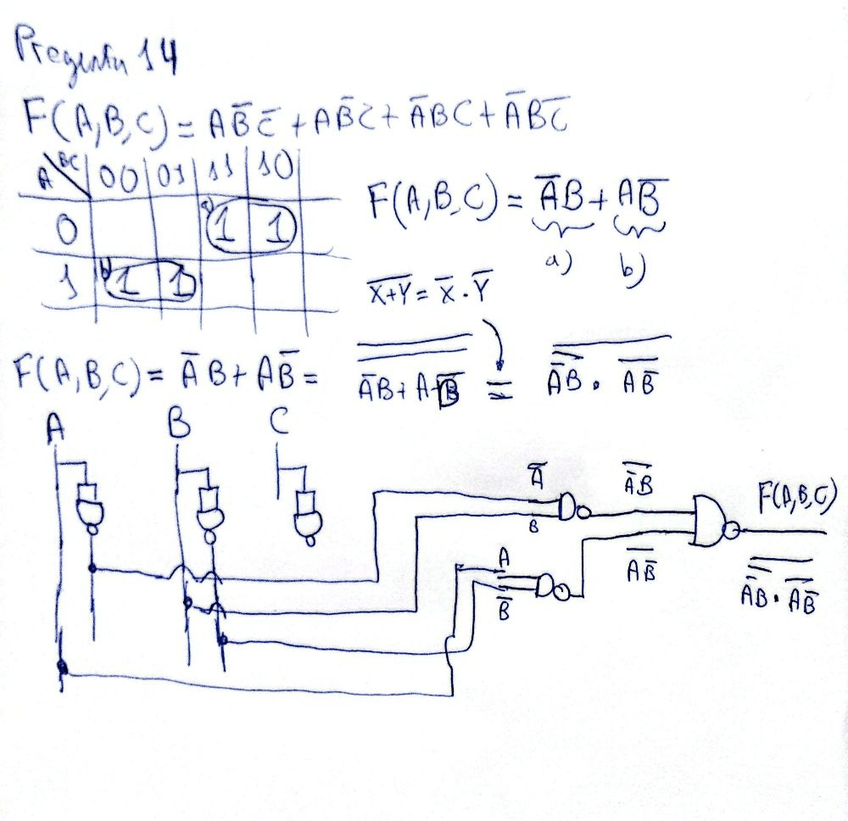 Pregunta 14
F(A,B,C) = AB̅C̅ + AB̅C + A̅BC + A̅BC̅
A\BC 00 01 11 10
0 a) 1 1
1 b) 1 1
F(A,B,C) = A̅B + AB̅
a) b)
\overline{X+Y} = X̅ · Y̅
F(A,B,C) = A̅B + AB̅ = \overline{\overline{A̅B + AB̅}} = \overline{\overline{A̅B} · \overline{AB̅}}
A B C
A̅ \overline{A̅B} F(A,B,C)
B
A \overline{AB̅}
B̅ \overline{\overline{A̅B} · \overline{AB̅}}